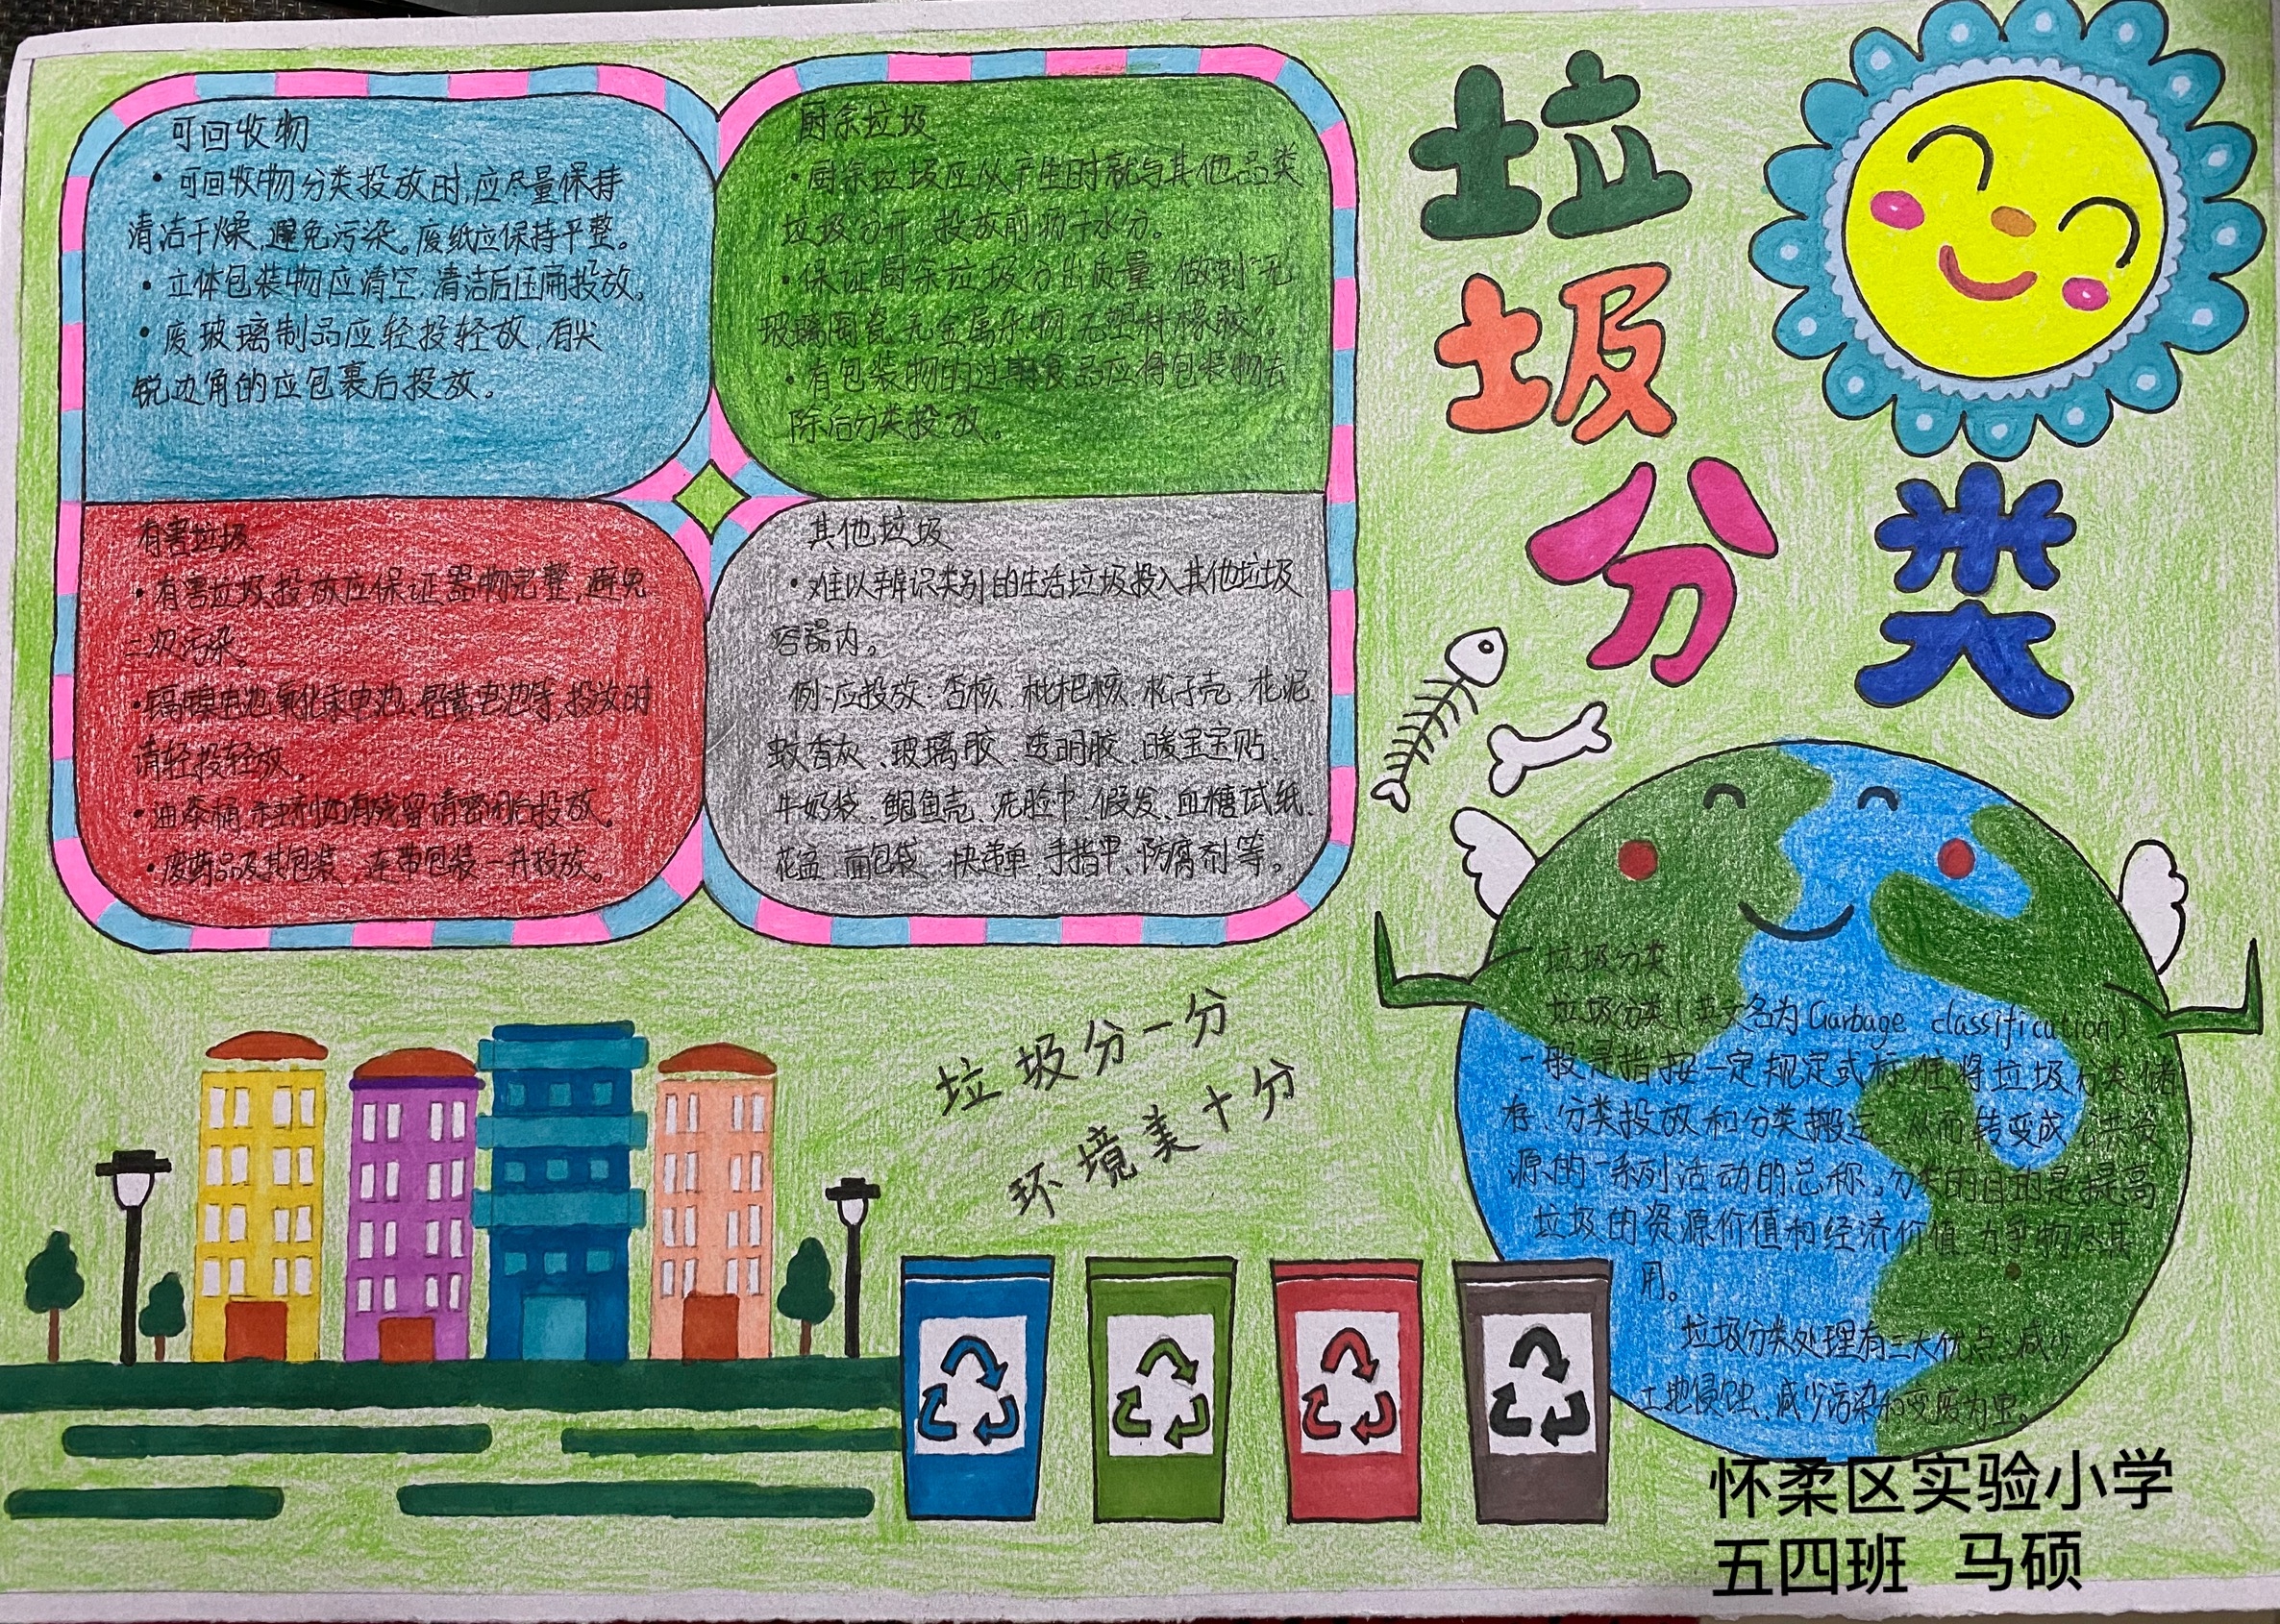 可回收物
•可回收物分类投放时,应尽量保持
清洁干燥,避免污染。废纸应保持平整。
•立体包装物应清空,清洁后压扁投放。
•废玻璃制品应轻投轻放,有尖
锐边角的应包裹后投放。
厨余垃圾
•厨余垃圾应从产生时就与其他品类
垃圾分开 投放前沥干水分。
•保证厨余垃圾分出质量 做到“无
玻璃陶瓷 无金属杂物 无塑料橡胶”。
•有包装物的过期食品应将包装物去
除后分类投放。
有害垃圾
•有害垃圾投放应保证器物完整,避免
二次污染。
•镉镍电池、氧化汞电池、铅蓄电池等,投放时
请轻投轻放。
•油漆桶、杀虫剂如有残留请密闭后投放。
•废药品及其包装,连带包装一并投放。
其他垃圾
•难以辨识类别的生活垃圾投入其他垃圾
容器内。
例:应投放:杏核、枇杷核、松子壳、花泥、
蚊香灰、玻璃胶、透明胶、暖宝宝贴、
牛奶袋、鲍鱼壳、洗脸巾、假发、血糖试纸、
花盆、面包袋、快递单、手指甲、防腐剂等。
垃圾
分类
垃圾分一分
环境美十分
垃圾分类
垃圾分类(英文名为Garbage classification)
一般是指按一定规定或标准将垃圾分类储
存、分类投放和分类搬运,从而转变成公共资
源的一系列活动的总称。分类的目的是提高
垃圾的资源价值和经济价值,力争物尽其
用。
垃圾分类处理有三大优点:减少
土地侵蚀、减少污染和变废为宝。
怀柔区实验小学
五四班 马硕